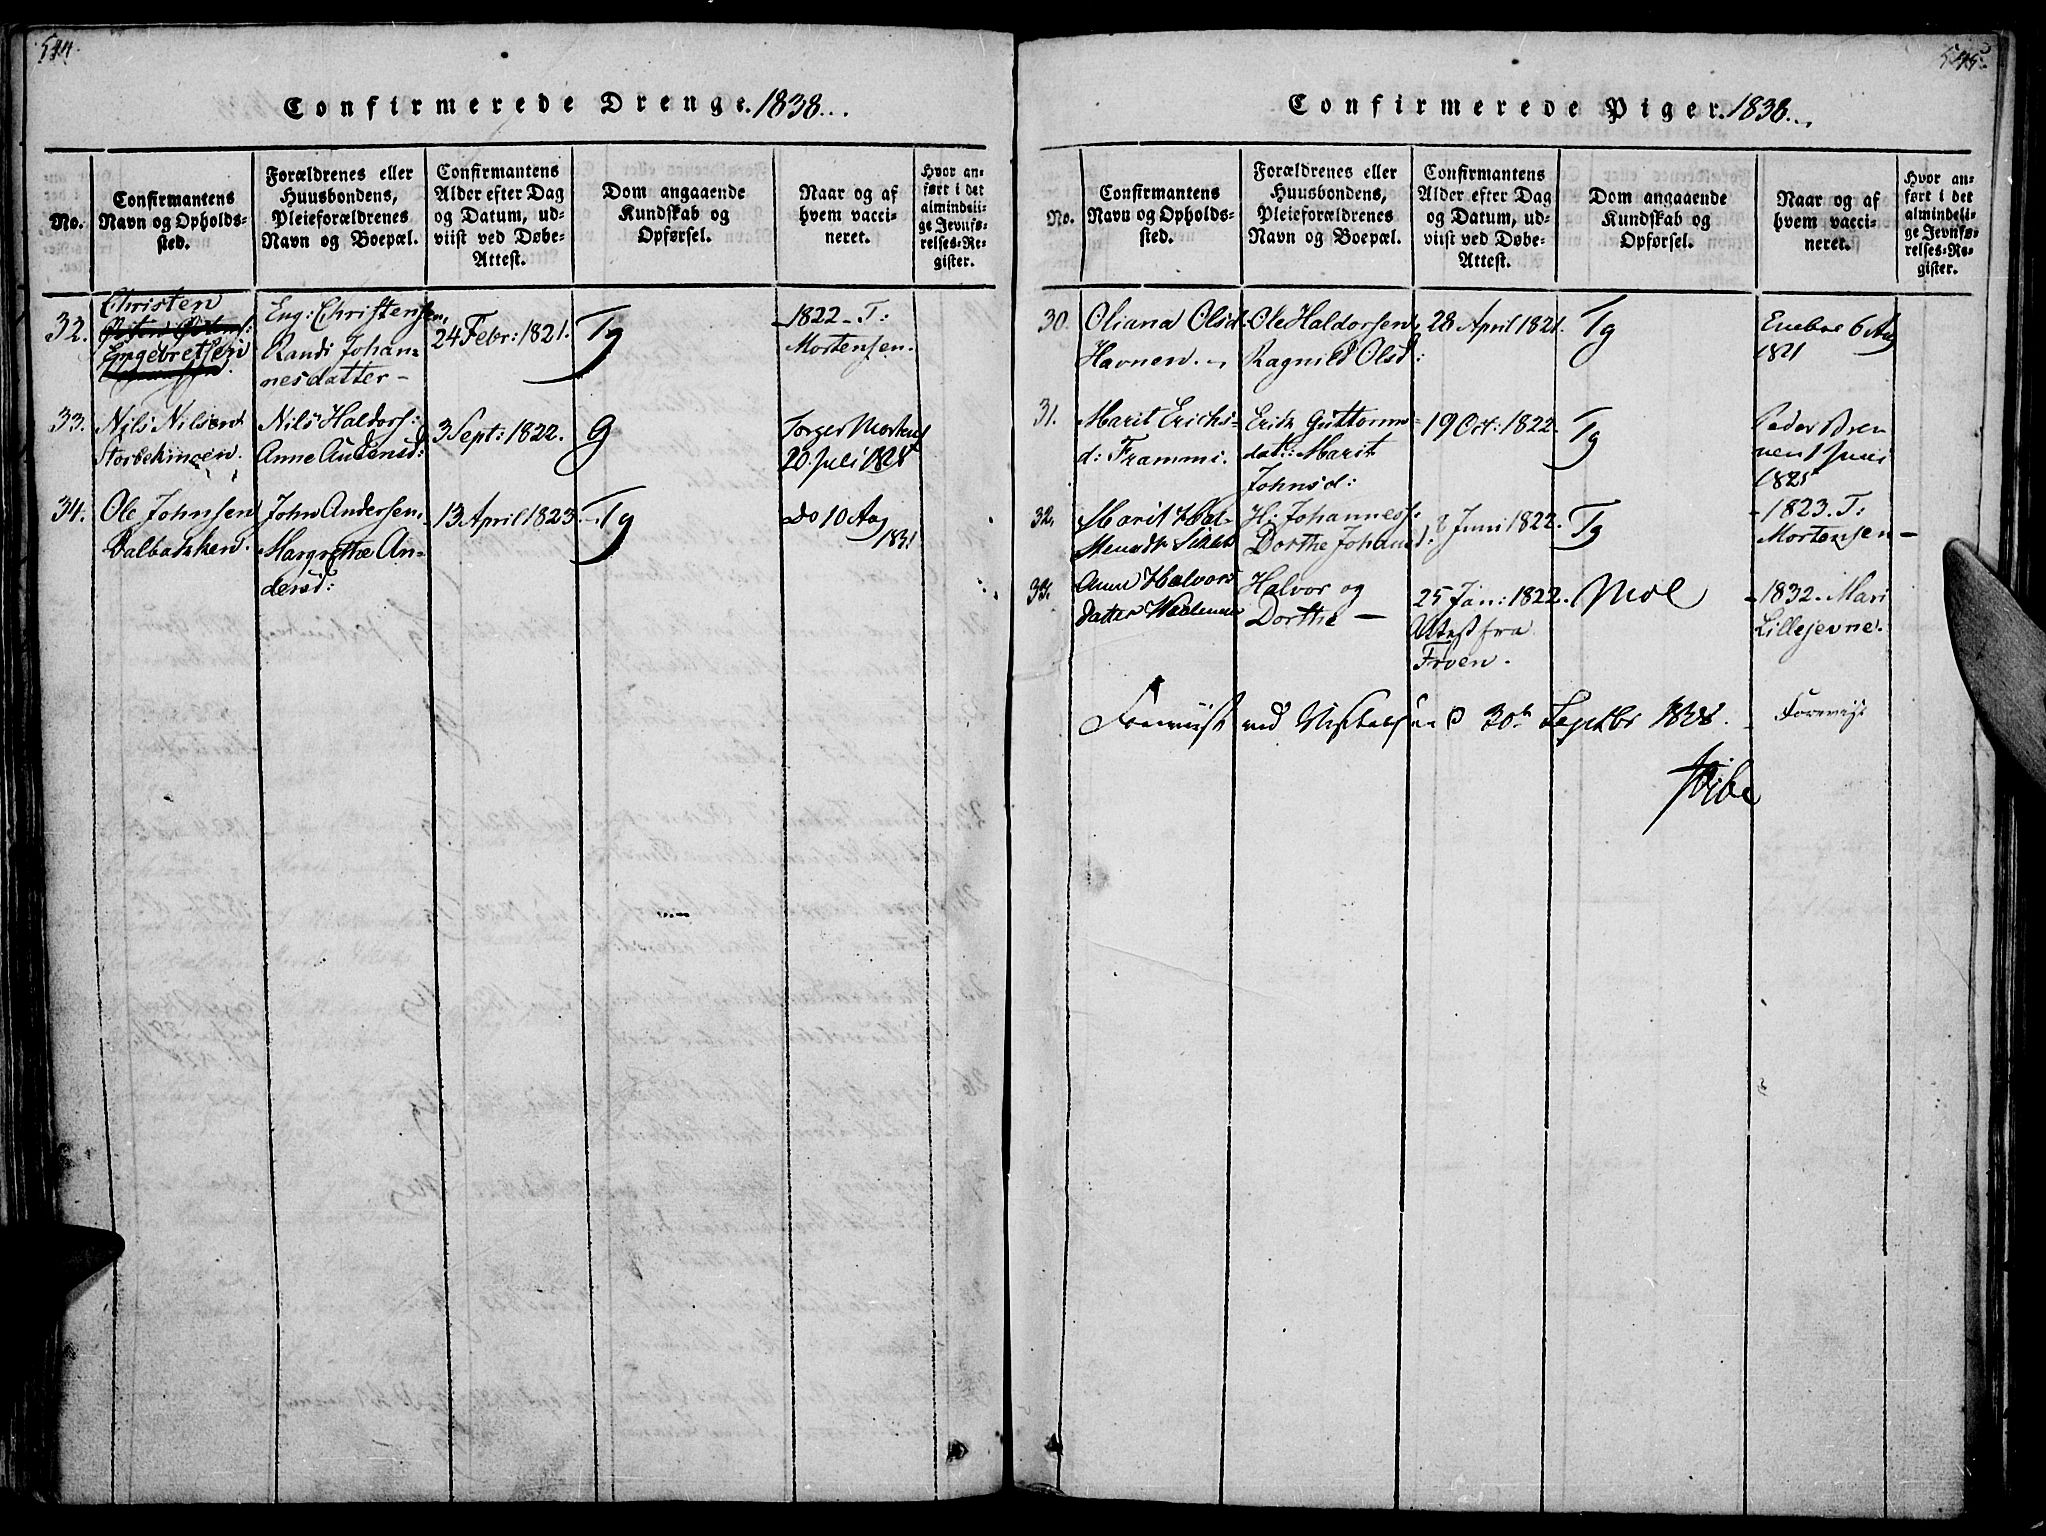 544.
Confirmerede Drenge. 1838...
No.
Confirmantens
Navn og Opholds-
sted.
Forældrenes eller
Huusbondens,
Pleieforældrenes
Navn og Boepæl.
Confirmantens
Alder efter Dag
og Datum, ud-
viist ved Døbe-
Attest.
Dom angaaende
Kundskab og
Opførsel.
Naar og af
hvem vacci-
neret.
Hvor an-
ført i det
almindeli-
ge Jevnfø-
relses-Re-
gister.
32.
Christen
Engebretsen
Eng: Christensen,
Randi Johan-
nesdatter -
24 Febr: 1821.
Tg
- 1822 - T:
Mortensen.
33.
Nils Nilsen
Nils Haldors:
Anne Audensd:
3 Sept: 1822.
G
Torger Mortens
20. Juli 1828
34.
Ole Johnsen
Dalbakken.
John Andersen
Margrethe An-
dersd:
13 April 1823.
Tg
Do 10 Aug
1831
545.
Confirmerede Piger. 1838...
No.
Confirmantens
Navn og Opholds-
sted.
Forældrenes eller
Huusbondens,
Pleieforældrenes
Navn og Boepæl.
Confirmantens
Alder efter Dag
og Datum, ud-
viist ved Døbe-
Attest.
Dom angaaende
Kundskab og
Opførsel.
Naar og af
hvem vacci-
neret.
Hvor an-
ført i det
almindeli-
ge Jevnfø-
relses-Re-
gister.
30.
Oliana Olsd.
Havnen. -
Ole Haldorsen,
Ragnild Olsd:
28 April 1821.
Tg
Eneboe 6 Aug
1821
31.
Marit Erichs-
d: Frammi.
Erik Guttorms-
dat: Marit
Johnsd:
19 Oct: 1822.
Tg
Peder Bren
1825
32.
Marit
H: Johanness:
Dorthe Johansd:
Juni 1822.
Tg
- 1823. T:
Mortensen -
33.
Anne Halvors
datter
Halvor og
Dorthe -
25 Jan: 1822.
Attest fra
Froen.
Mdl
- 1832. Mari
Lillejevne.
Fremviist ved Visitatsen d 30te Septbr 1838.
Forevist